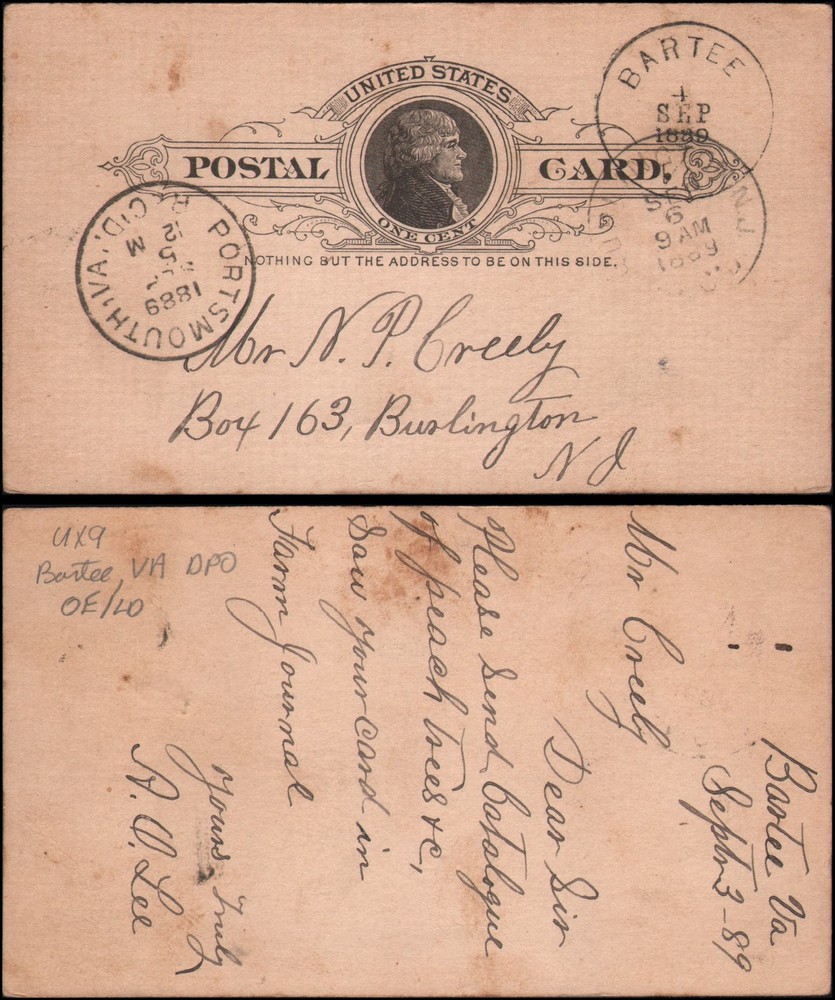 UNITED STATES
POSTAL CARD.
ONE CENT
NOTHING BUT THE ADDRESS TO BE ON THIS SIDE.
BARTEE
4
SEP
1889
N.J.
6
9 AM
1889
PORTSMOUTH, VA.
REC'D.
12 M
5
1889
Mr N. P. Creely
Box 163, Burlington
N J
UX9
Bartee, VA DPO
OE/LO
Bartee Va
Septr 3-89
Mr Creely
Dear Sir
Please Send Catalogue
of peach trees &c,
Saw your card in
Farm Journal
Yours Truly
A. W. Lee